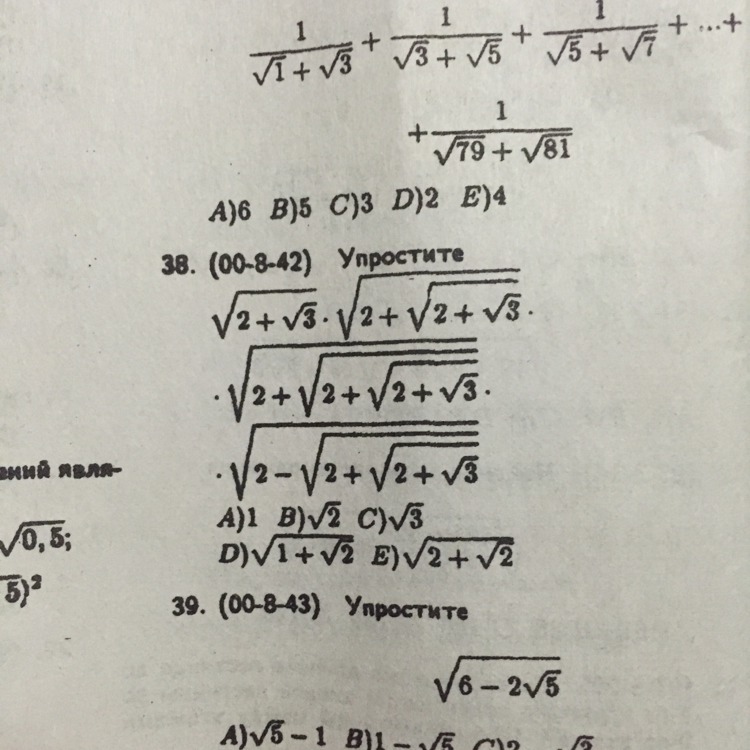 1/(√1 + √3) + 1/(√3 + √5) + 1/(√5 + √7) + ...+
+ 1/(√79 + √81)
A)6 B)5 C)3 D)2 E)4
38. (00-8-42) Упростите
√(2 + √3) · √(2 + √(2 + √3)) ·
· √(2 + √(2 + √(2 + √3))) ·
· √(2 − √(2 + √(2 + √3)))
A)1 B)√2 C)√3
D)√(1 + √2) E)√(2 + √2)
39. (00-8-43) Упростите
√(6 − 2√5)
A)√5 − 1 B)1 − √5
√0,5;
5)²